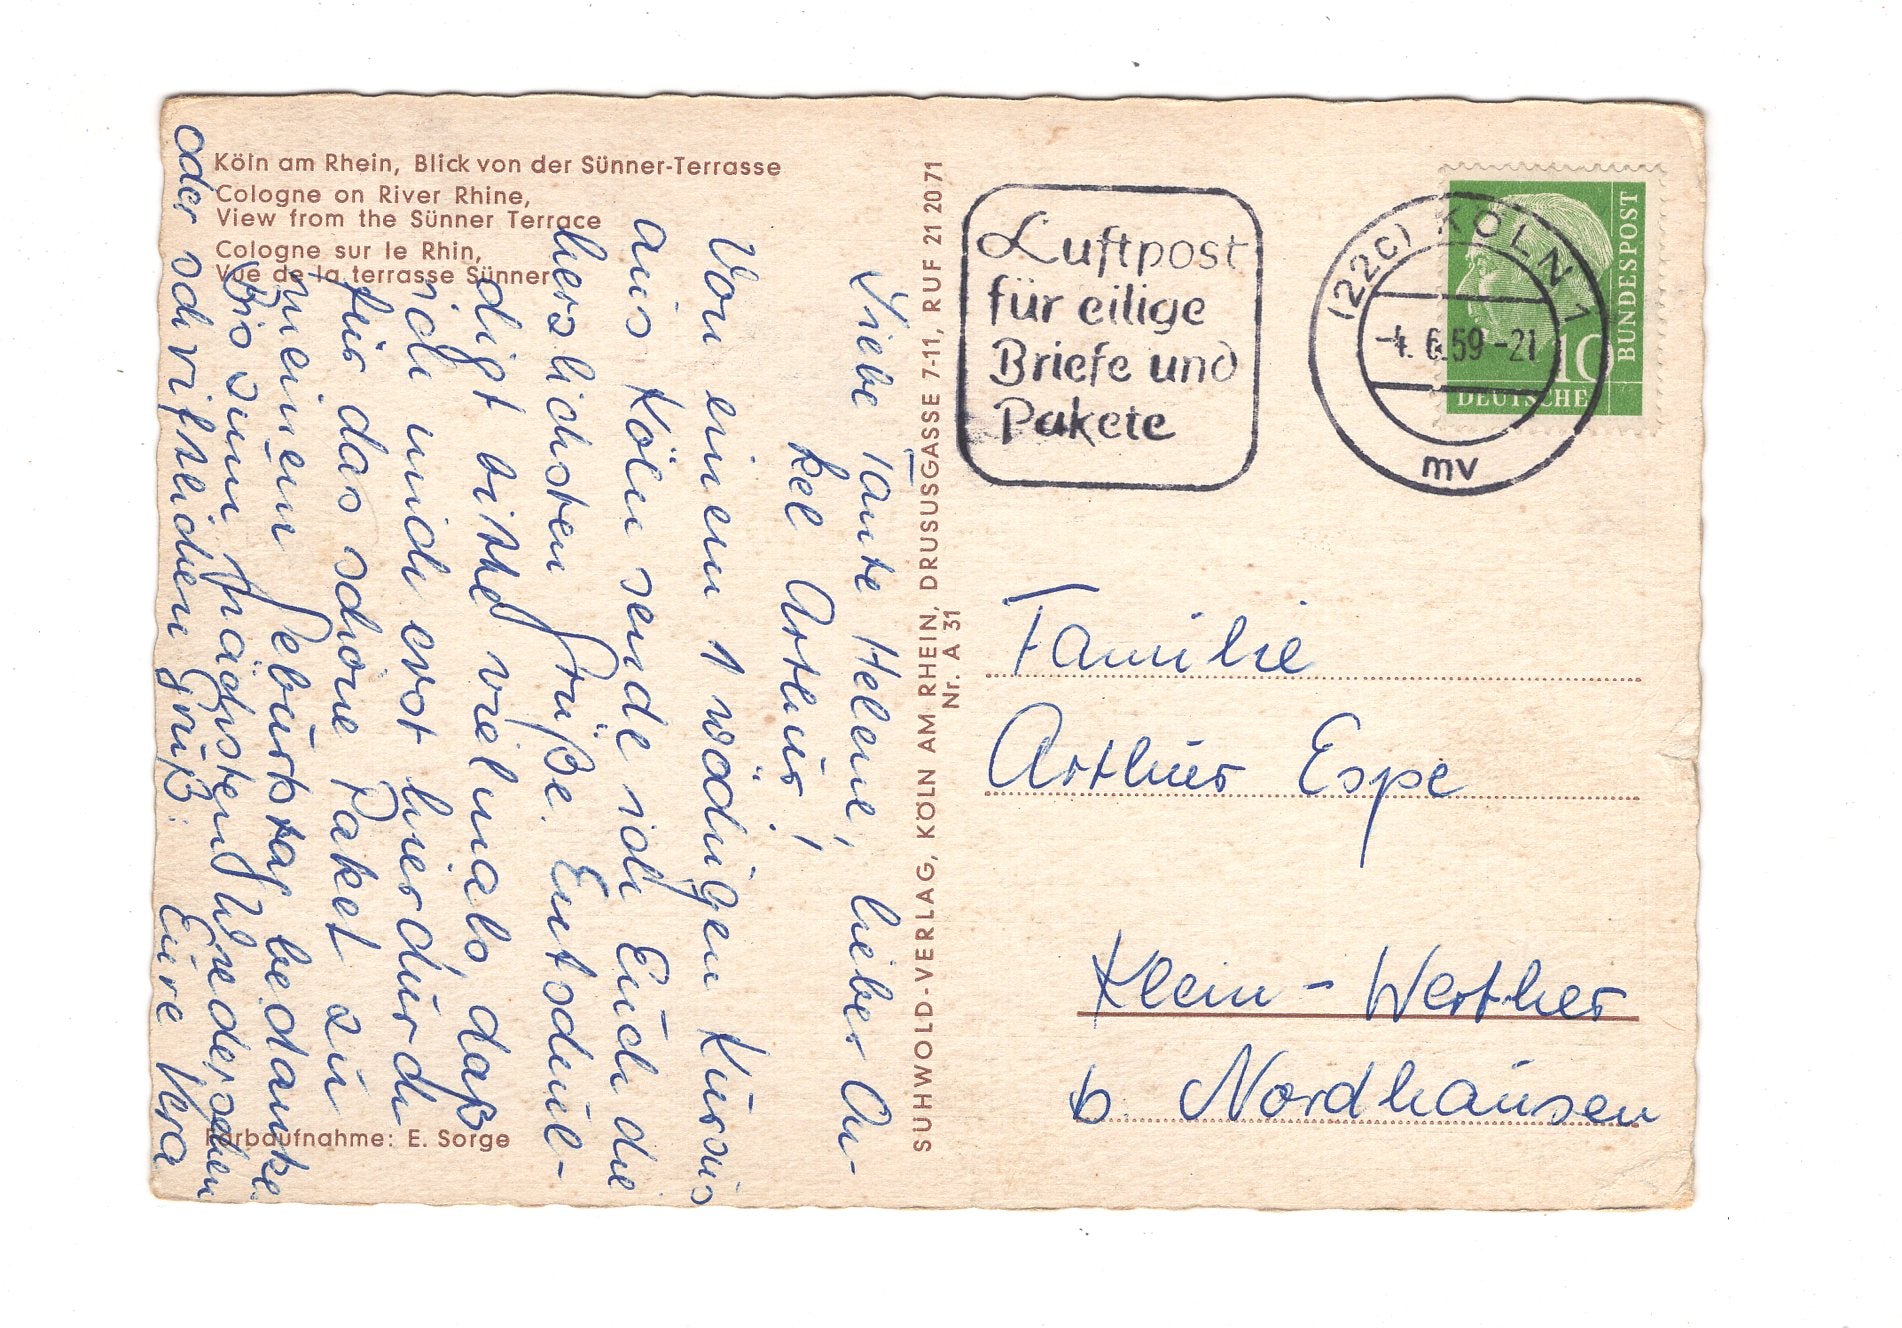 Köln am Rhein, Blick von der Sünner-Terrasse
Cologne on River Rhine,
View from the Sünner Terrace
Cologne sur le Rhin,
Vue de la terrasse Sünner
Liebe Tante Helene, lieber On-
kel Arthur!
Von einem 1 wöchigen Kursus
aus Köln sende ich Euch die
herzlichsten Grüße. Entschul-
digt bitte vielmals, daß
ich mich erst hierdurch
für das schöne Paket zu
meinem Geburtstag bedanke.
Bis zum nächsten Wiedersehen
oder schriftlichen Gruß: Eure Vera
Farbaufnahme: E. Sorge
SUHWOLD-VERLAG, KÖLN AM RHEIN, DRUSUSGASSE 7-11, RUF 21 20 71
Nr. A 31
Luftpost
für eilige
Briefe und
Pakete
(22c) KÖLN 1
-4. 6. 59 -21
mv
10
DEUTSCHE
BUNDESPOST
Familie
Arthur Espe
Klein-Werther
b. Nordhausen